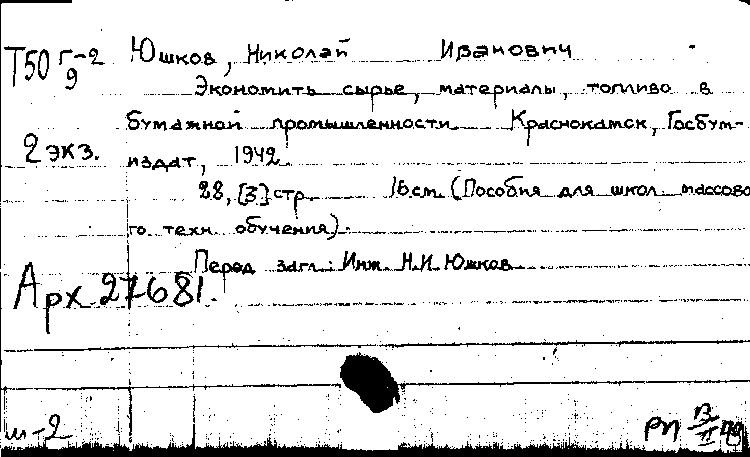 Т50 Г-2
9
Юшков, Николай Иванович
Экономить сырье, материалы, топливо в
бумажной промышленности Краснокамск, Госбум-
издат, 1942.
2 экз.
28, [3] стр. 16 см. (Пособия для школ массово
го техн. обучения).
Перед загл.: Инж. Н.И. Юшков
Арх 27681.
ш-2